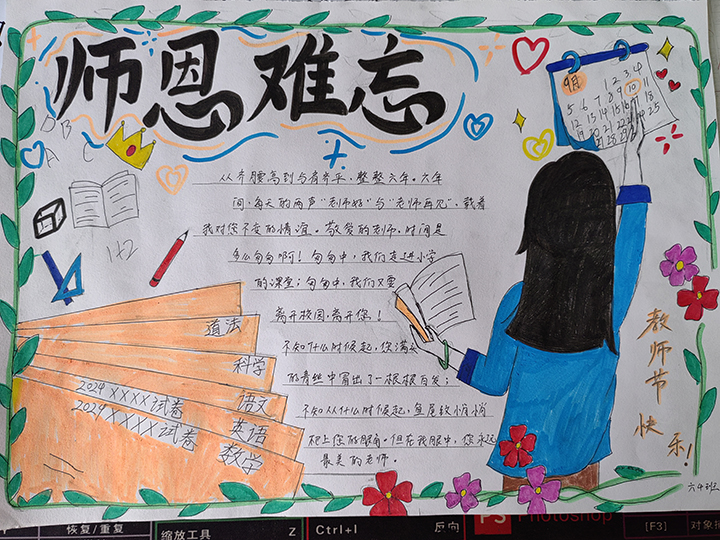 师恩难忘
9月
1 2 3 4
5 6 7 8 9 10 11
12 13 14 15 16
18
19 20 21 22
25
A B
A C
1+2
从齐腰高到与肩齐平，整整六年。六年
间，每天的两声“老师好”与“老师再见”，载着
我对您不变的情谊。敬爱的老师，时间是
多么匆匆啊！匆匆中，我们走进小学
的课堂；匆匆中，我们又要
离开校园，离开您！
不知什么时候起，您满头
的青丝中冒出了一根根白发；
不知从什么时候起，鱼尾纹悄悄
爬上您的眼角。但在我眼中，您永远
最美的老师。
道法
科学
语文
英语
数学
2024 XXXX试卷
2024 XXXX试卷
教师节快乐！
六4班
恢复/重复
缩放工具 Z
Ctrl+I 反向
PS Photoshop
[F3]